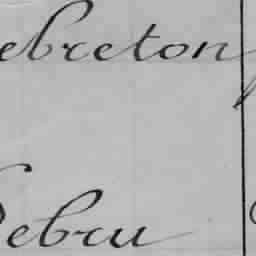 ebreton
Debru